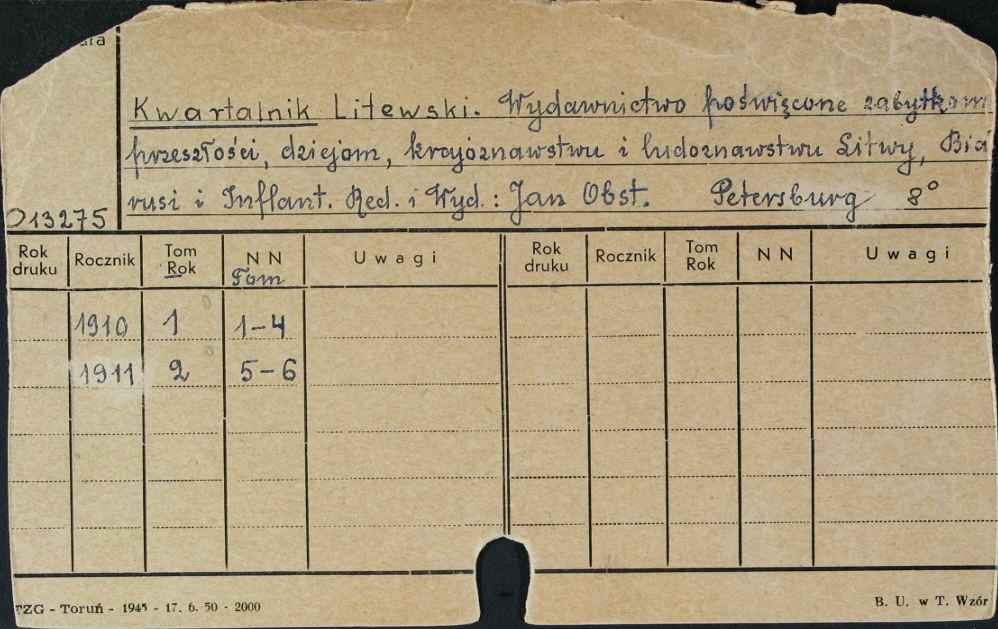 Kwartalnik Litewski. Wydawnictwo poświęcone zabytkom
przeszłości, dziejom, krajoznawstwu i ludoznawstwu Litwy, Bia
rusi i Inflant. Red. i Wyd.: Jan Obst. Petersburg 8°
013275
Rok druku Rocznik Tom Rok NN Tom Uwagi Rok druku Rocznik Tom Rok NN Uwagi
1910 1 1-4
1911 2 5-6
TZG - Toruń - 1945 - 17. 6. 50 - 2000 B. U. w T. Wzór